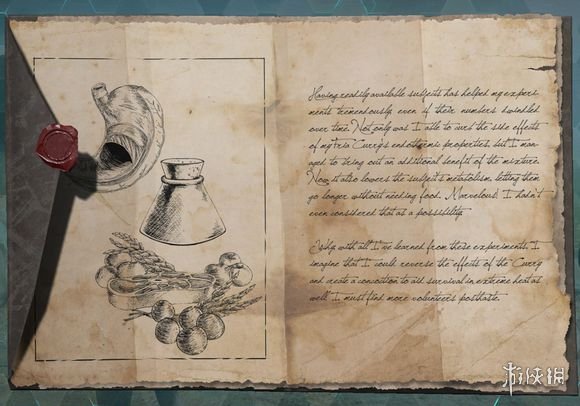 Having readily available subjects has helped my experi-
ments tremendously, even if their numbers dwindled
over time. Not only was I able to curb the side effects
of my Fria Curry's endothermic properties, but I man-
aged to bring out an additional benefit of the mixture.
Now it also lowers the subject's metabolism, letting them
go longer without needing food. Marvelous! I hadn't
even considered that as a possibility.
Why with all I've learned from these experiments, I
imagine that I could reverse the effects of the Curry
and create a concoction to aid survival in extreme heat as
well. I must find more volunteers posthaste.
游侠网